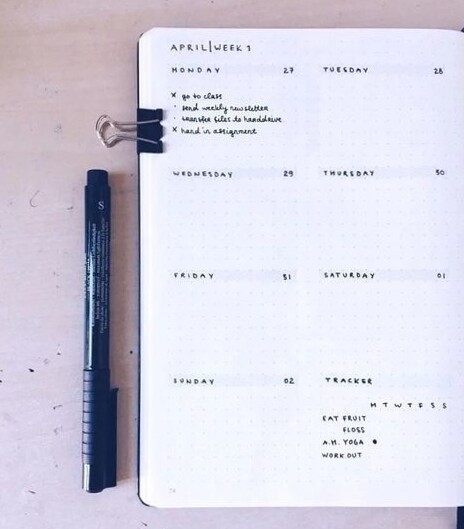 APRIL|WEEK 1
MONDAY 27
TUESDAY 28
x go to class
· send weekly newsletter
· transfer files to harddrive
x hand in assignment
WEDNESDAY 29
THURSDAY 30
FRIDAY 31
SATURDAY 01
SUNDAY 02
TRACKER
M T W T F S S
EAT FRUIT
FLOSS
A.M. YOGA ●
WORK OUT
S